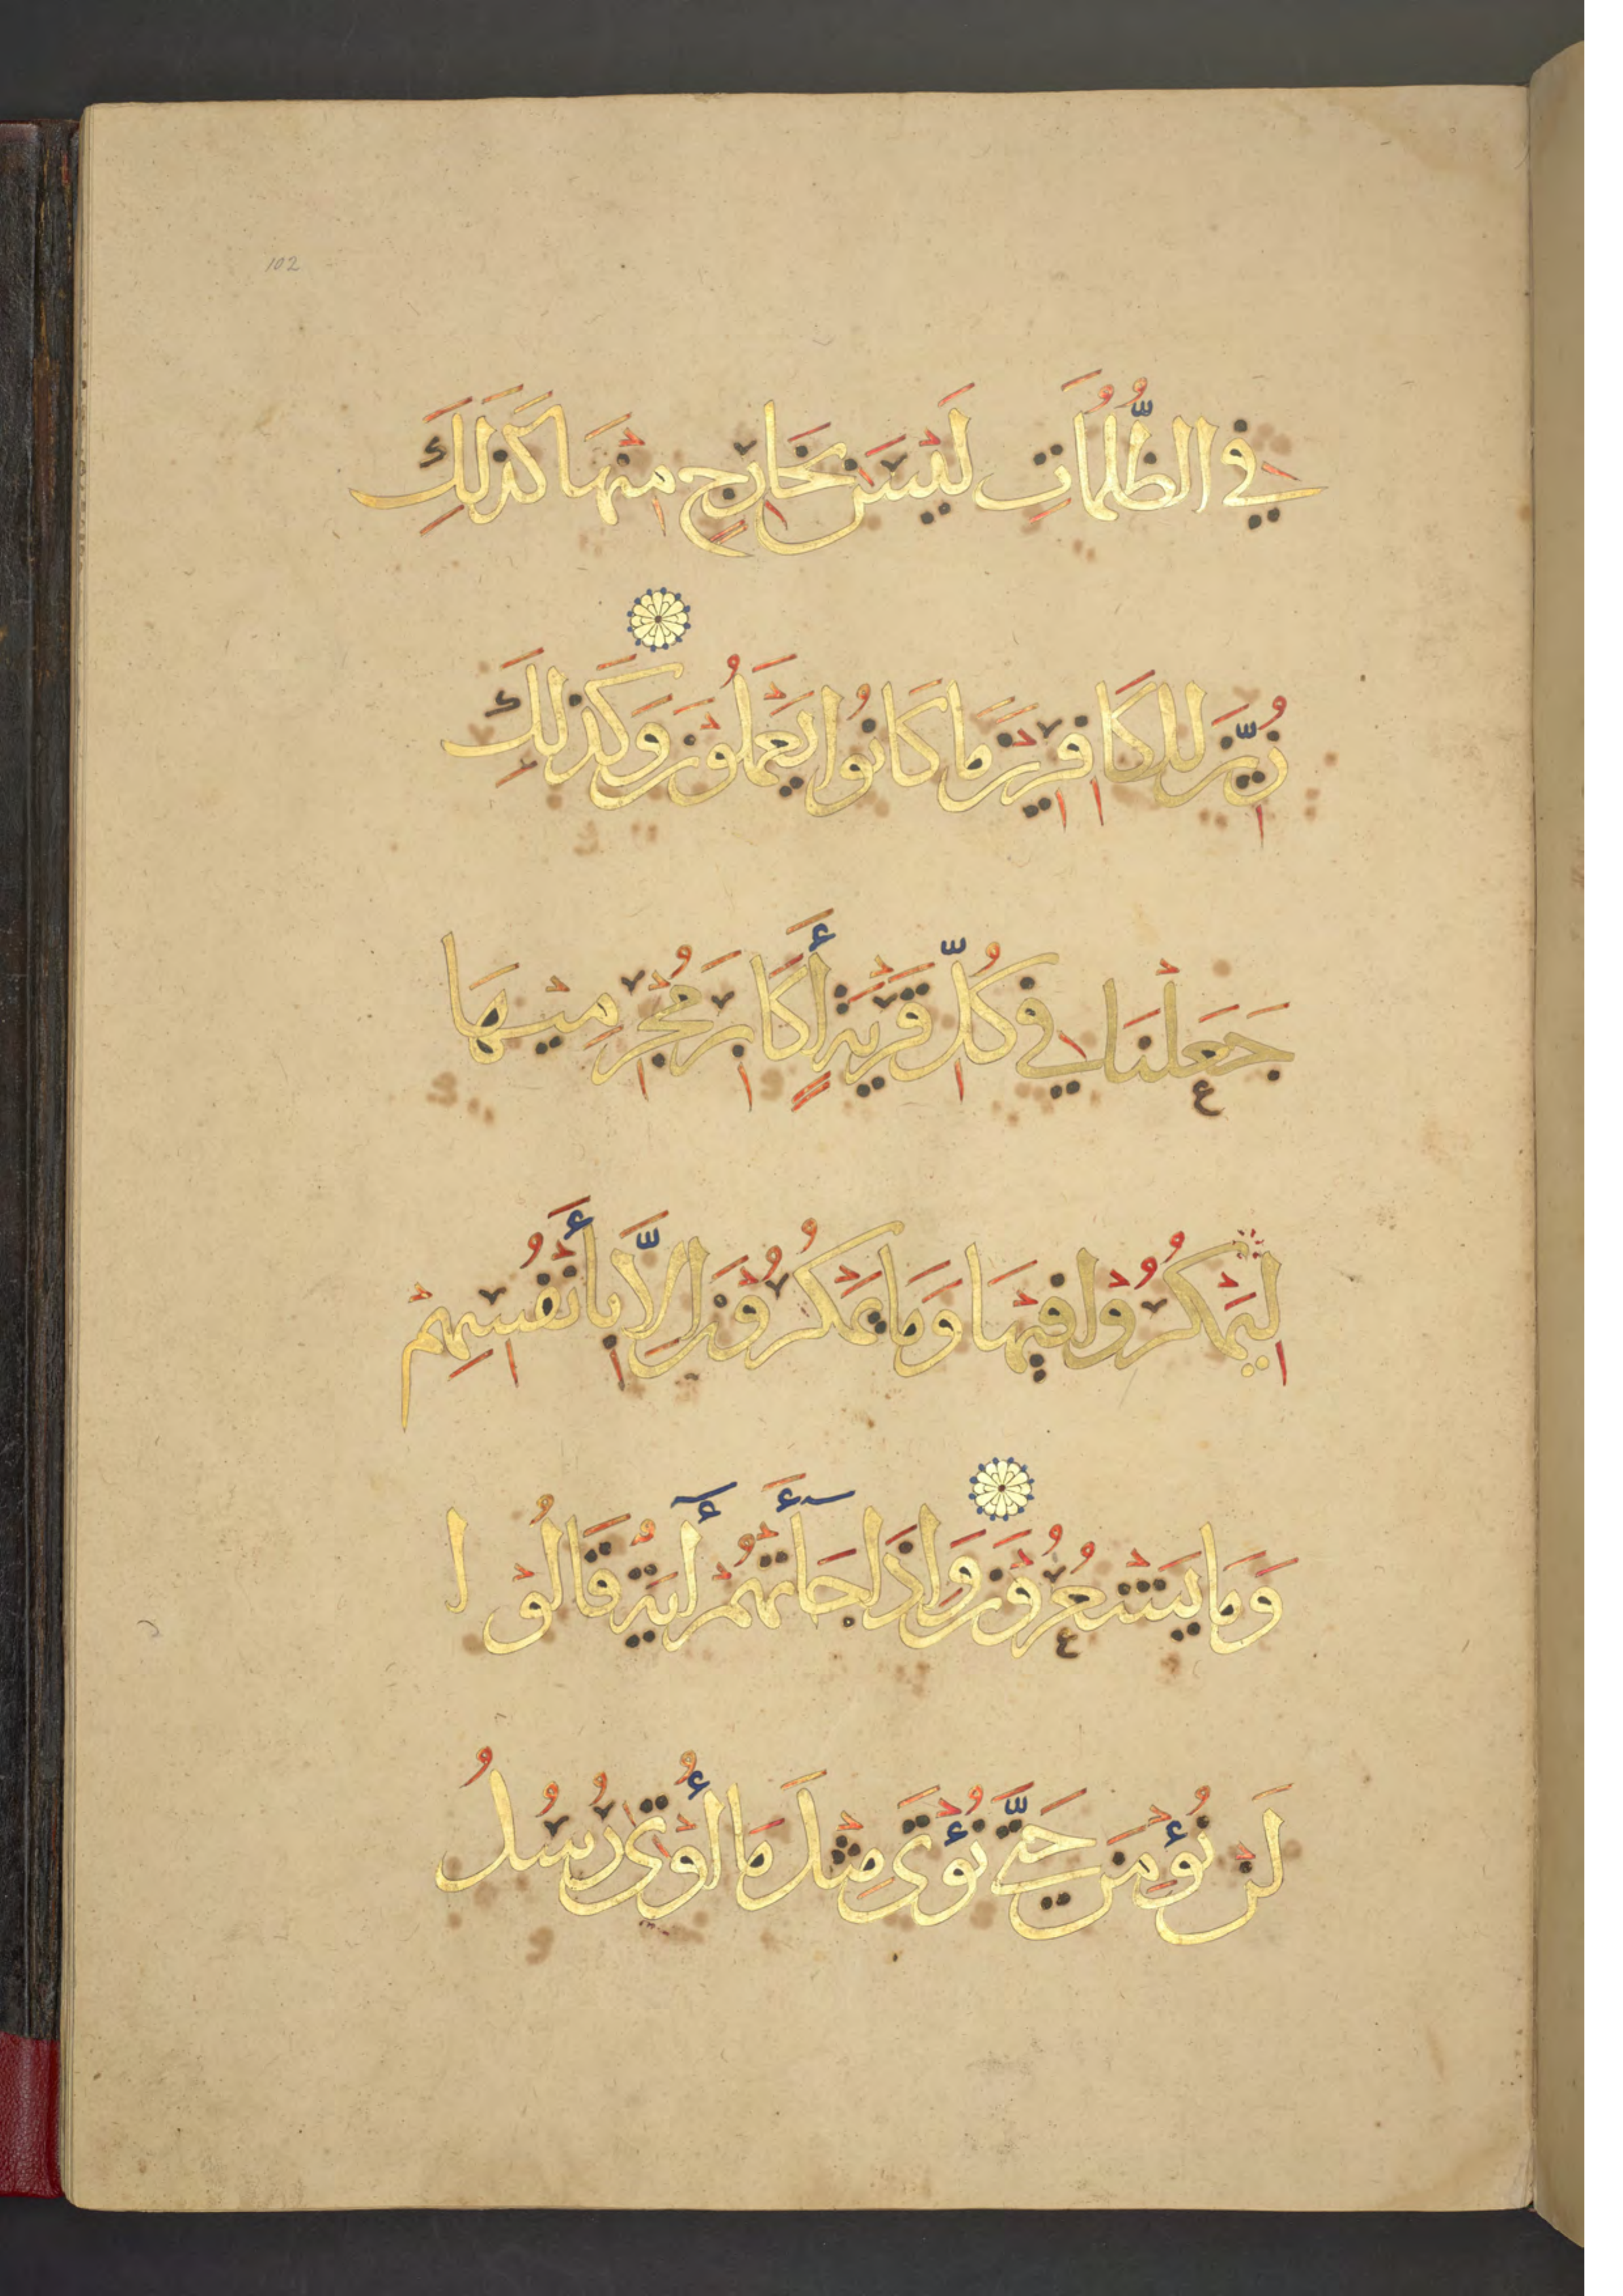 102
في الظُّلُمَاتِ لَيْسَ بِخَارِجٍ مِنْهَا كَذَلِكَ
زُيِّنَ لِلْكَافِرِيْنَ مَا كَانُوا يَعْمَلُوْنَ وَكَذَلِكَ
جَعَلْنَا فِي كُلِّ قَرْيَةٍ أَكَابِرَ مُجْرِمِيْهَا
لِيَمْكُرُوْا فِيْهَا وَمَا يَمْكُرُوْنَ اِلَّا بِأَنْفُسِهِمْ
وَمَا يَشْعُرُوْنَ وَاِذَا جَآءَتْهُمْ أٓيَةٌ قَالُوْا
لَنْ نُؤْمِنَ حَتَّى نُؤْتَى مِثْلَ مَا أُوْتِىَ رُسُلُ